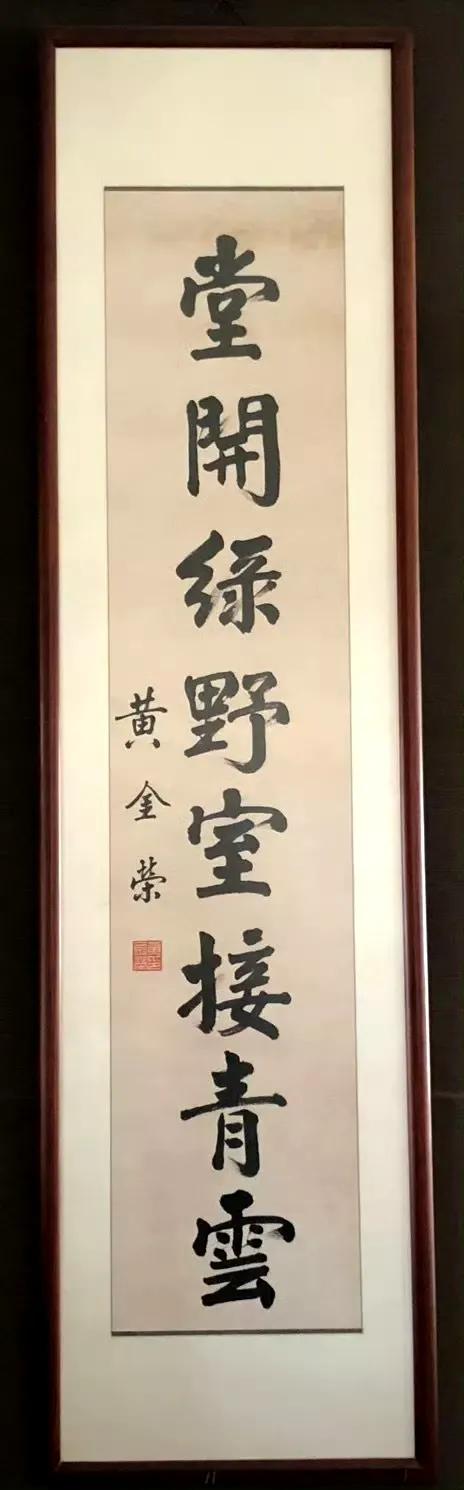 堂開緑野室接青雲
黄金榮